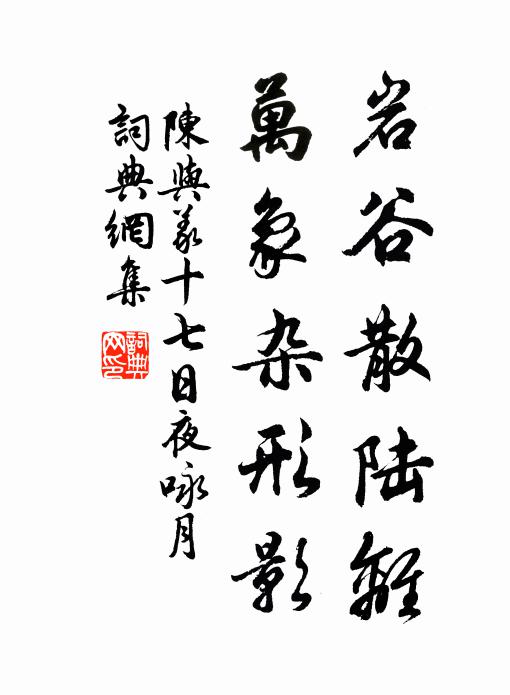 岩谷散陆離
萬象杂形影
陳與義十七日夜咏月
詞典網集
詞典
网印